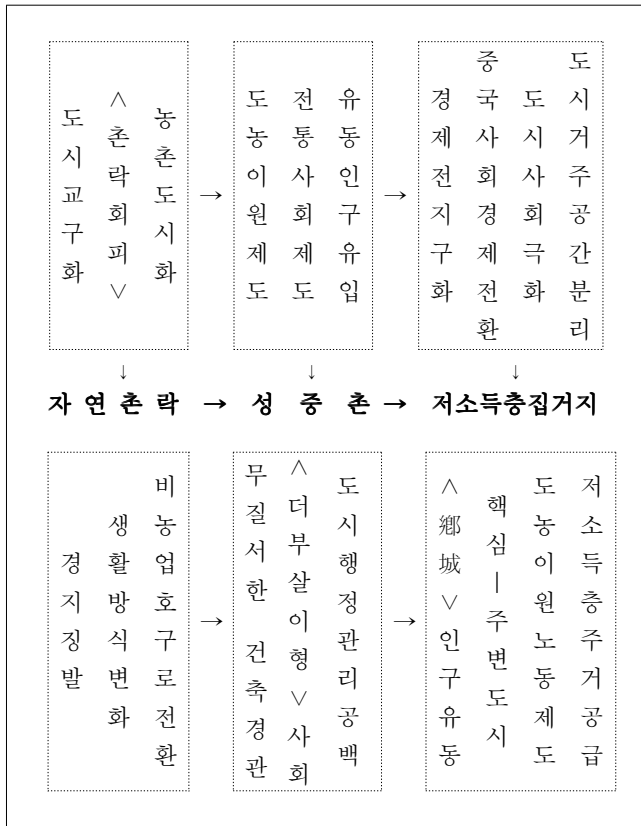 도시교구화
<촌락회피>
농촌도시화
→
도농이원제도
전통사회제도
유동인구유입
→
경제전지구화
중국사회경제전환
도시사회극화
도시거주공간분리
↓ ↓ ↓
자 연 촌 락 → 성 중 촌 → 저소득층집거지
경지징발
생활방식변화
비농업호구로전환
→
무질서한 건축경관
<더부살이형>사회
도시행정관리공백
→
<鄕城>인구유동
핵심―주변도시
도농이원노동제도
저소득층주거공급